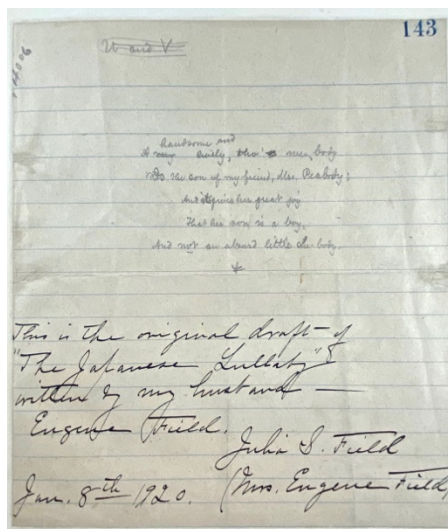 143
U and V
14006
handsome and
A very lively, tho' wee, body
Is the son of my friend, Mrs. Peabody;
And it gives her great joy
That her son is a boy,
And not an absurd little she-body.
This is the original draft of
"The Japanese Lullaby"
written by my husband —
Eugene Field.
Julia S. Field
Jan. 8th 1920. (Mrs. Eugene Field)